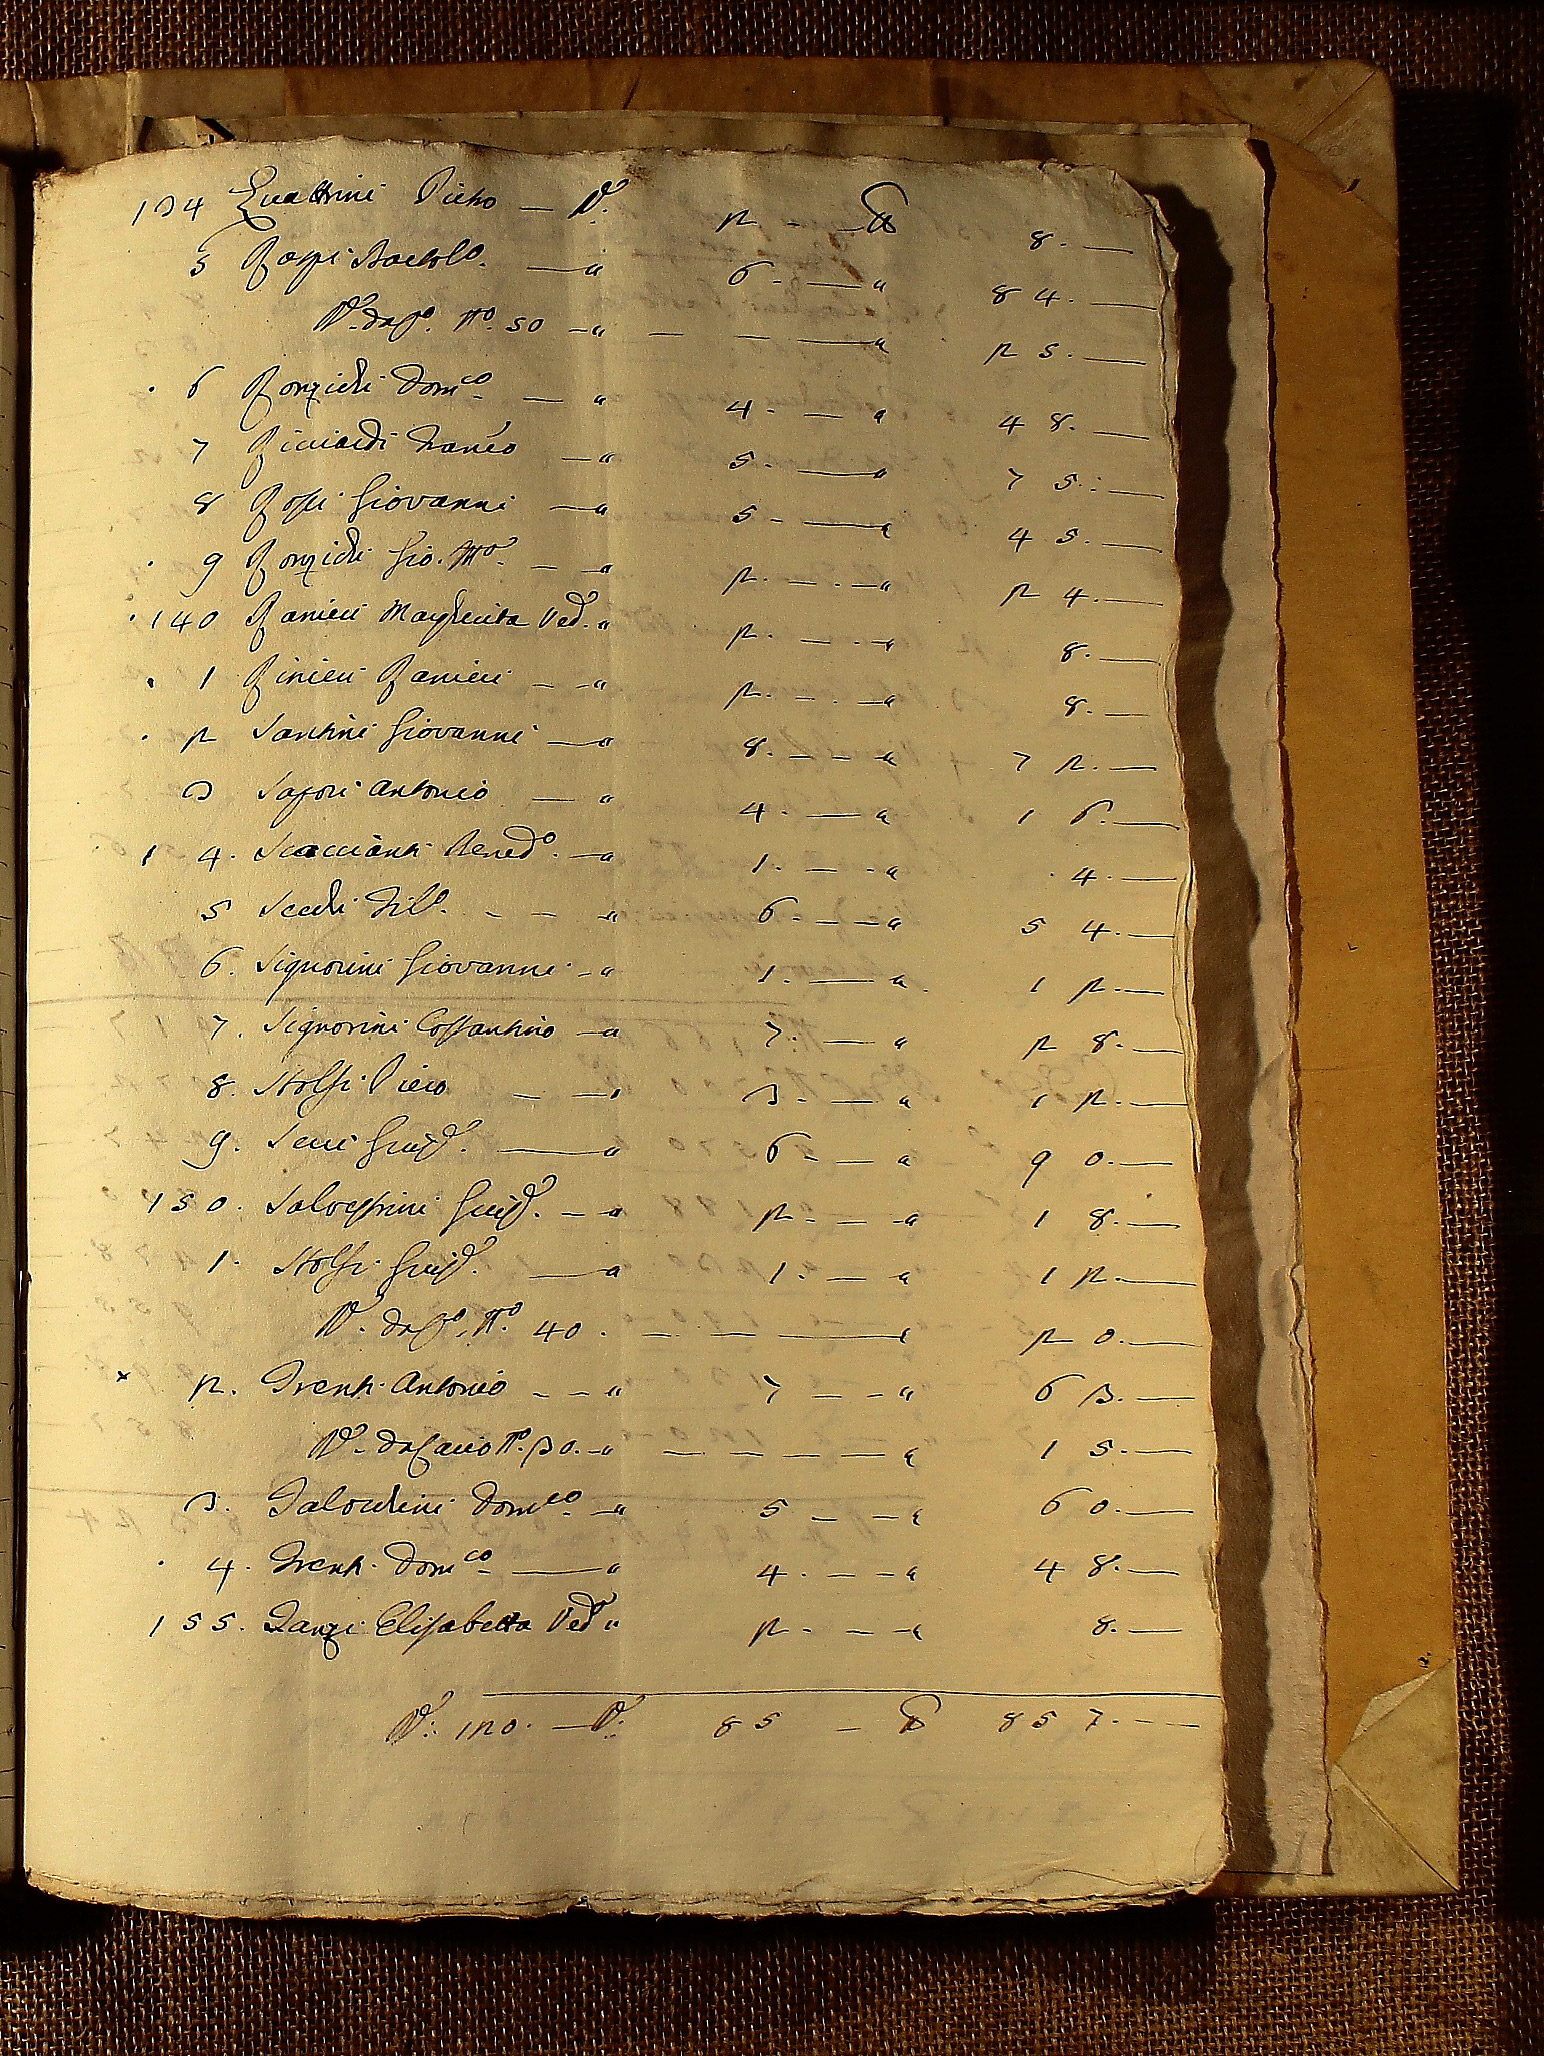 134 Quattrini Pietro — N.° 2 - - ₶ 8. —
5 Rossi Bartol.° — " 6 - — " 84. —
N.° da S.° N.° 50 — " — — — " 25. —
6 Ronzichi Dom.co — " 4. — " 48. —
7 Ricciardi Franc.o — " 5. — " 75. —
8 Rossi Giovanni — " 5 - — " 45. —
9 Ronzichi Gio. M.a — " 2. — " 24. —
140 Ranieri Margherita Ved.a " 2. — " 8. —
1 Rinieri Ranieri — " 2. — " 8. —
2 Santini Giovanni — " 8. — " 72. —
3 Santori Antonio — " 4. — " 16. —
4. Scaccianti Bened.° — " 1. — " 4. —
5 Secchi Fil.° - - " 6 - — " 54. —
6. Signorini Giovanni - " 1. — " 12. —
7. Signorini Costantino — " 7. — " 28. —
8. Stolfi Piero — " 3. — " 12. —
9. Serri Gius.e — " 6 - — " 90. —
150. Salvestrini Gius.e — " 2 - — " 18. —
1. Stolfi Gius.e — " 1. — " 12. —
N.° da S.° N.° 40. — — — " 20. —
2. Trenti Antonio - - " 7 — " 63. —
N.° da Sario N.° 30. — " — — — " 15. —
3. Talocchini Dom.co — " 5 - — " 60. —
4. Trenti Dom.co — " 4. — " 48. —
155. Tanzi Elisabetta Ved.a " 2 - — " 8. —
N.° 120. — N.° 85 — ₶ 857. —